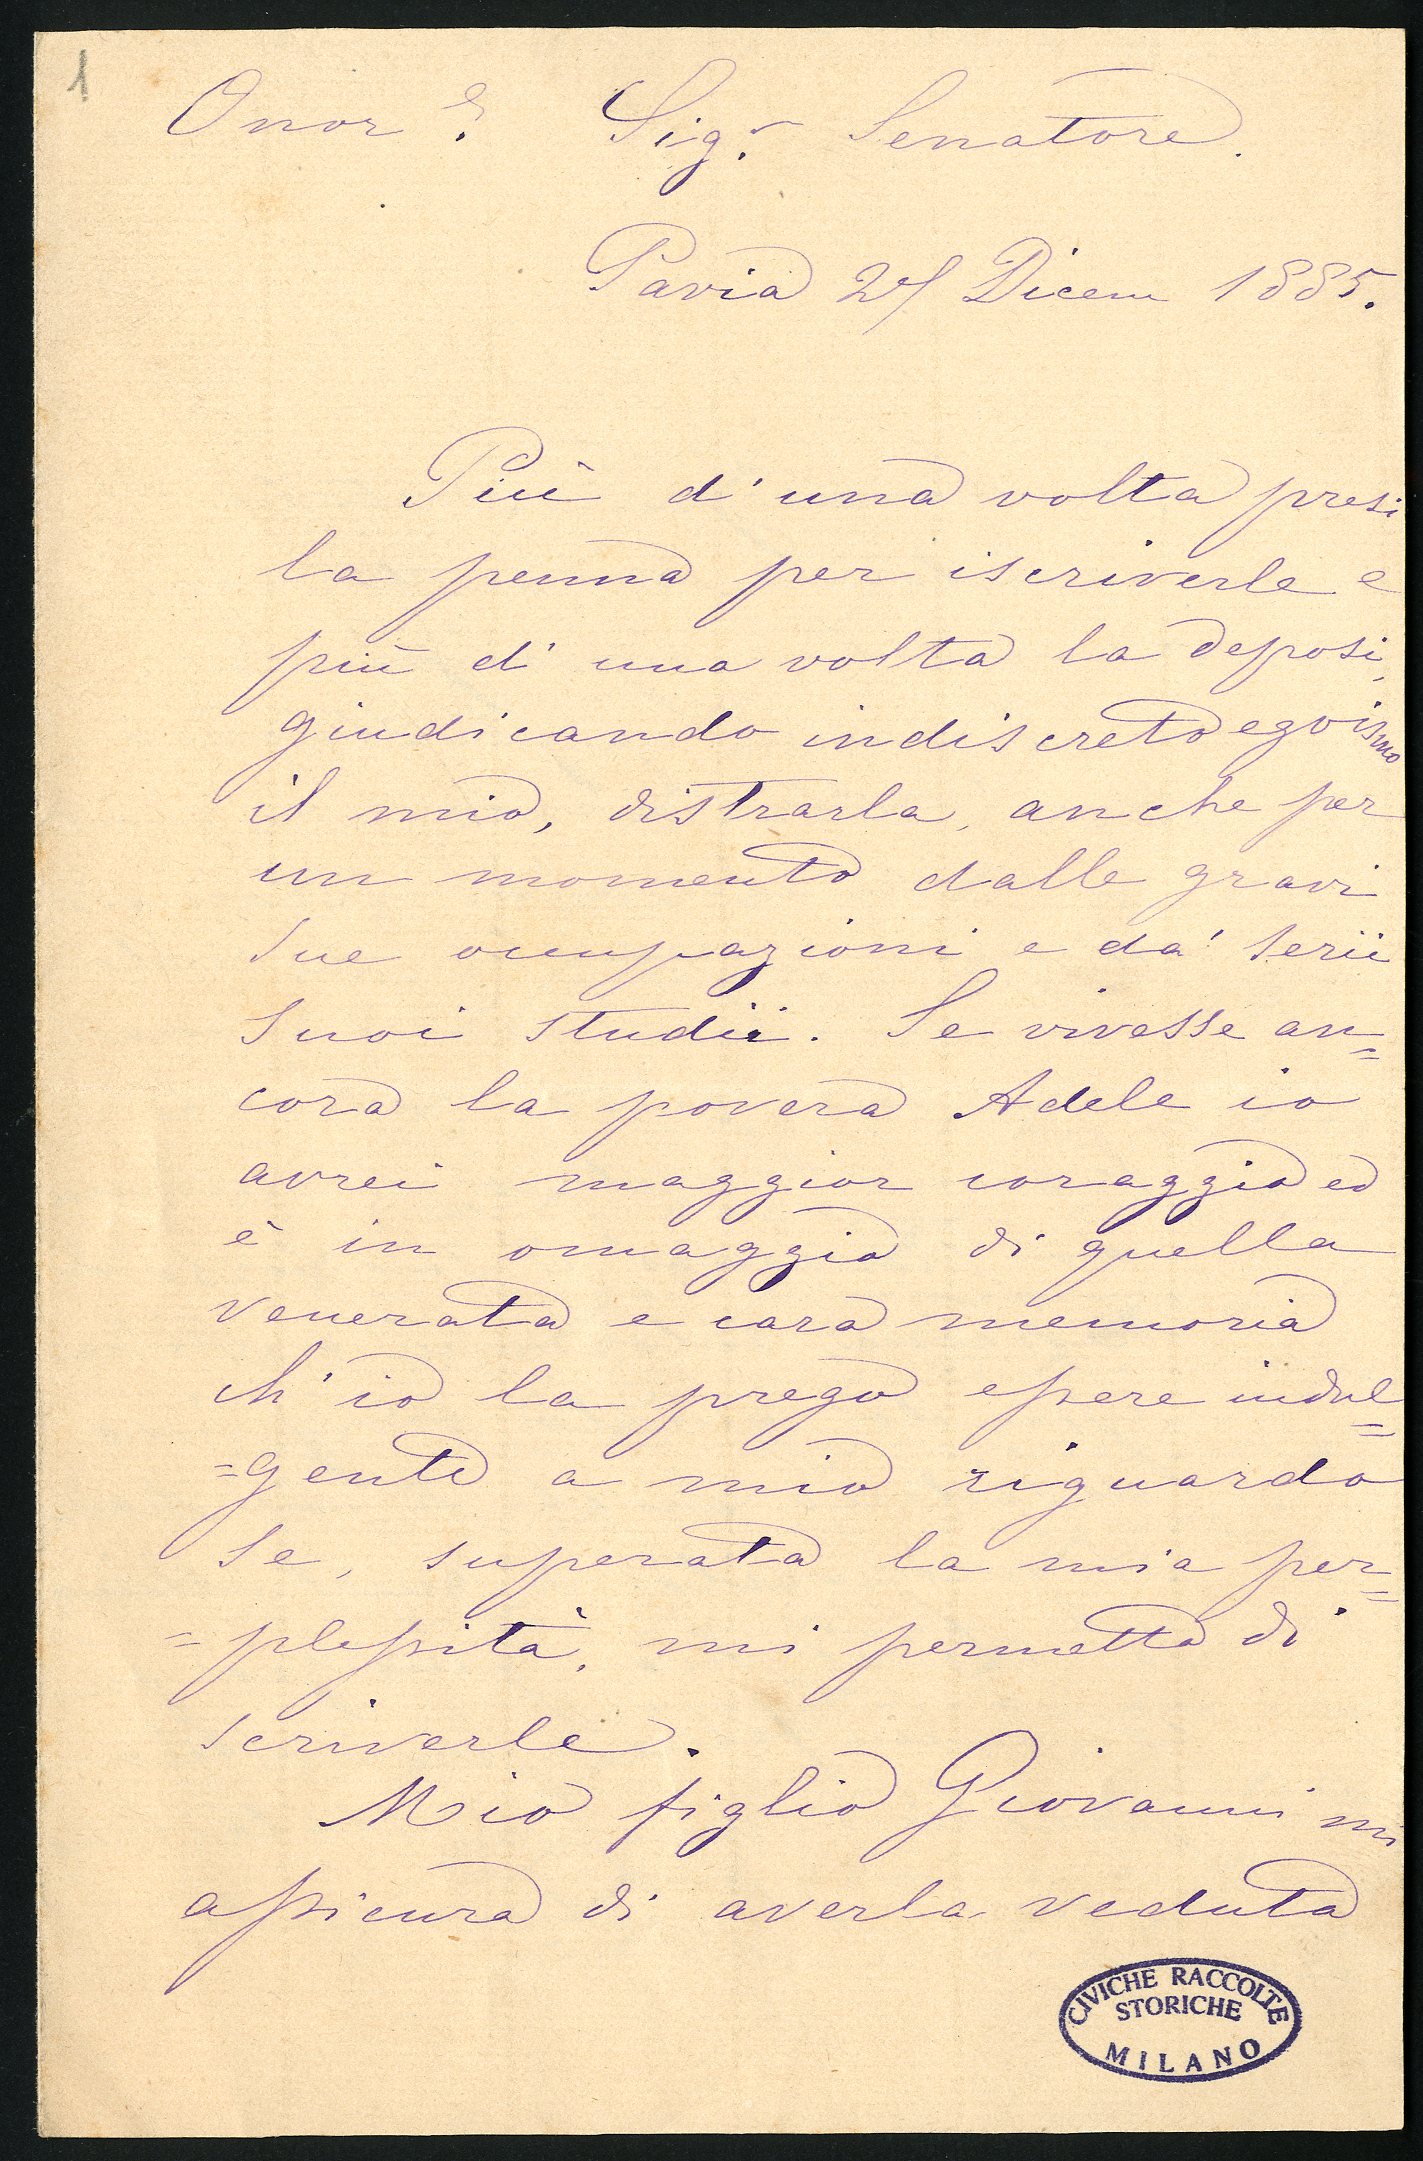 1
Onor.e Sig.r Senatore.
Pavia 27 Dicem 1885.
Più d'una volta presi
la penna per iscriverle e
più d'una volta la deposi,
giudicando indiscreto egoismo
il mio, distrarla, anche per
un momento dalle gravi
sue occupazioni e da' serii
suoi studii. Se vivesse an=
cora la povera Adele io
avrei maggior coraggio ed
è in omaggio di quella
venerata e cara memoria
ch'io la prego essere indul=
=gente a mio riguardo
se, superata la mia per=
=plessità, mi permetto di
scriverle.
Mio figlio Giovanni mi
assicura di averla veduta
CIVICHE RACCOLTE
STORICHE
MILANO